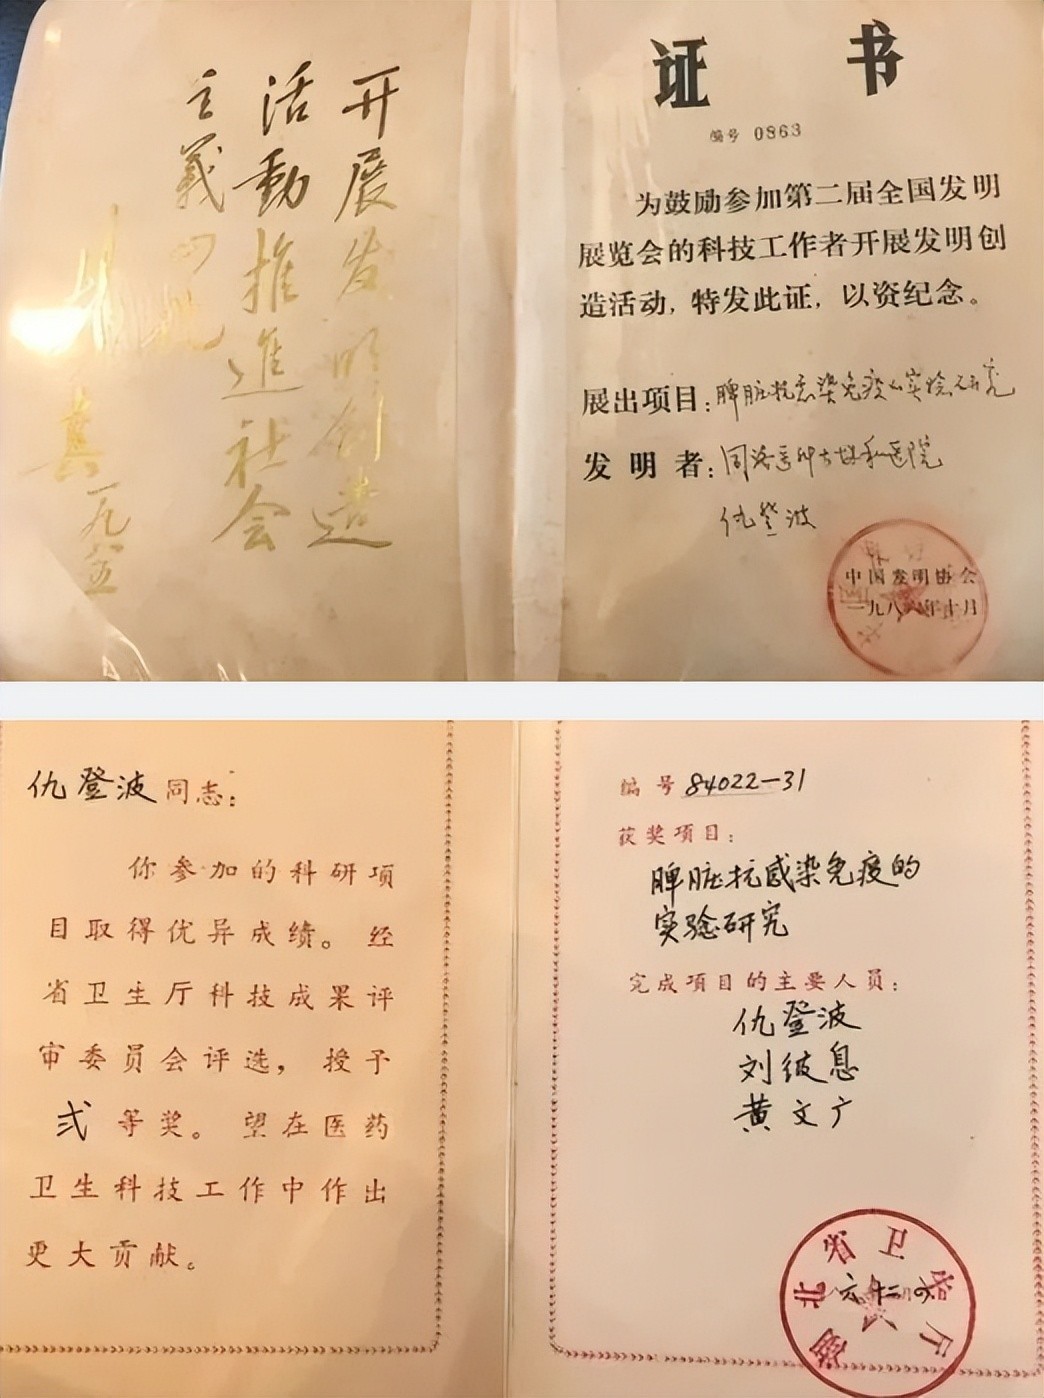 开展发明创造
活動推進社会
主義四化
一九八五
证书
编号 0863
为鼓励参加第二届全国发明
展览会的科技工作者开展发明创
造活动，特发此证，以资纪念。
展出项目：脾脏抗感染免疫的实验研究
发明者：同济医科大协和医院
仇登波
中国发明协会
一九八六年十月
仇登波同志：
你参加的科研项
目取得优异成绩。经
省卫生厅科技成果评
审委员会评选，授予
弍等奖。望在医药
卫生科技工作中作出
更大贡献。
编号 84022-31
获奖项目：
脾脏抗感染免疫的
实验研究
完成项目的主要人员：
仇登波
刘彼息
黄文广
湖北省卫生厅